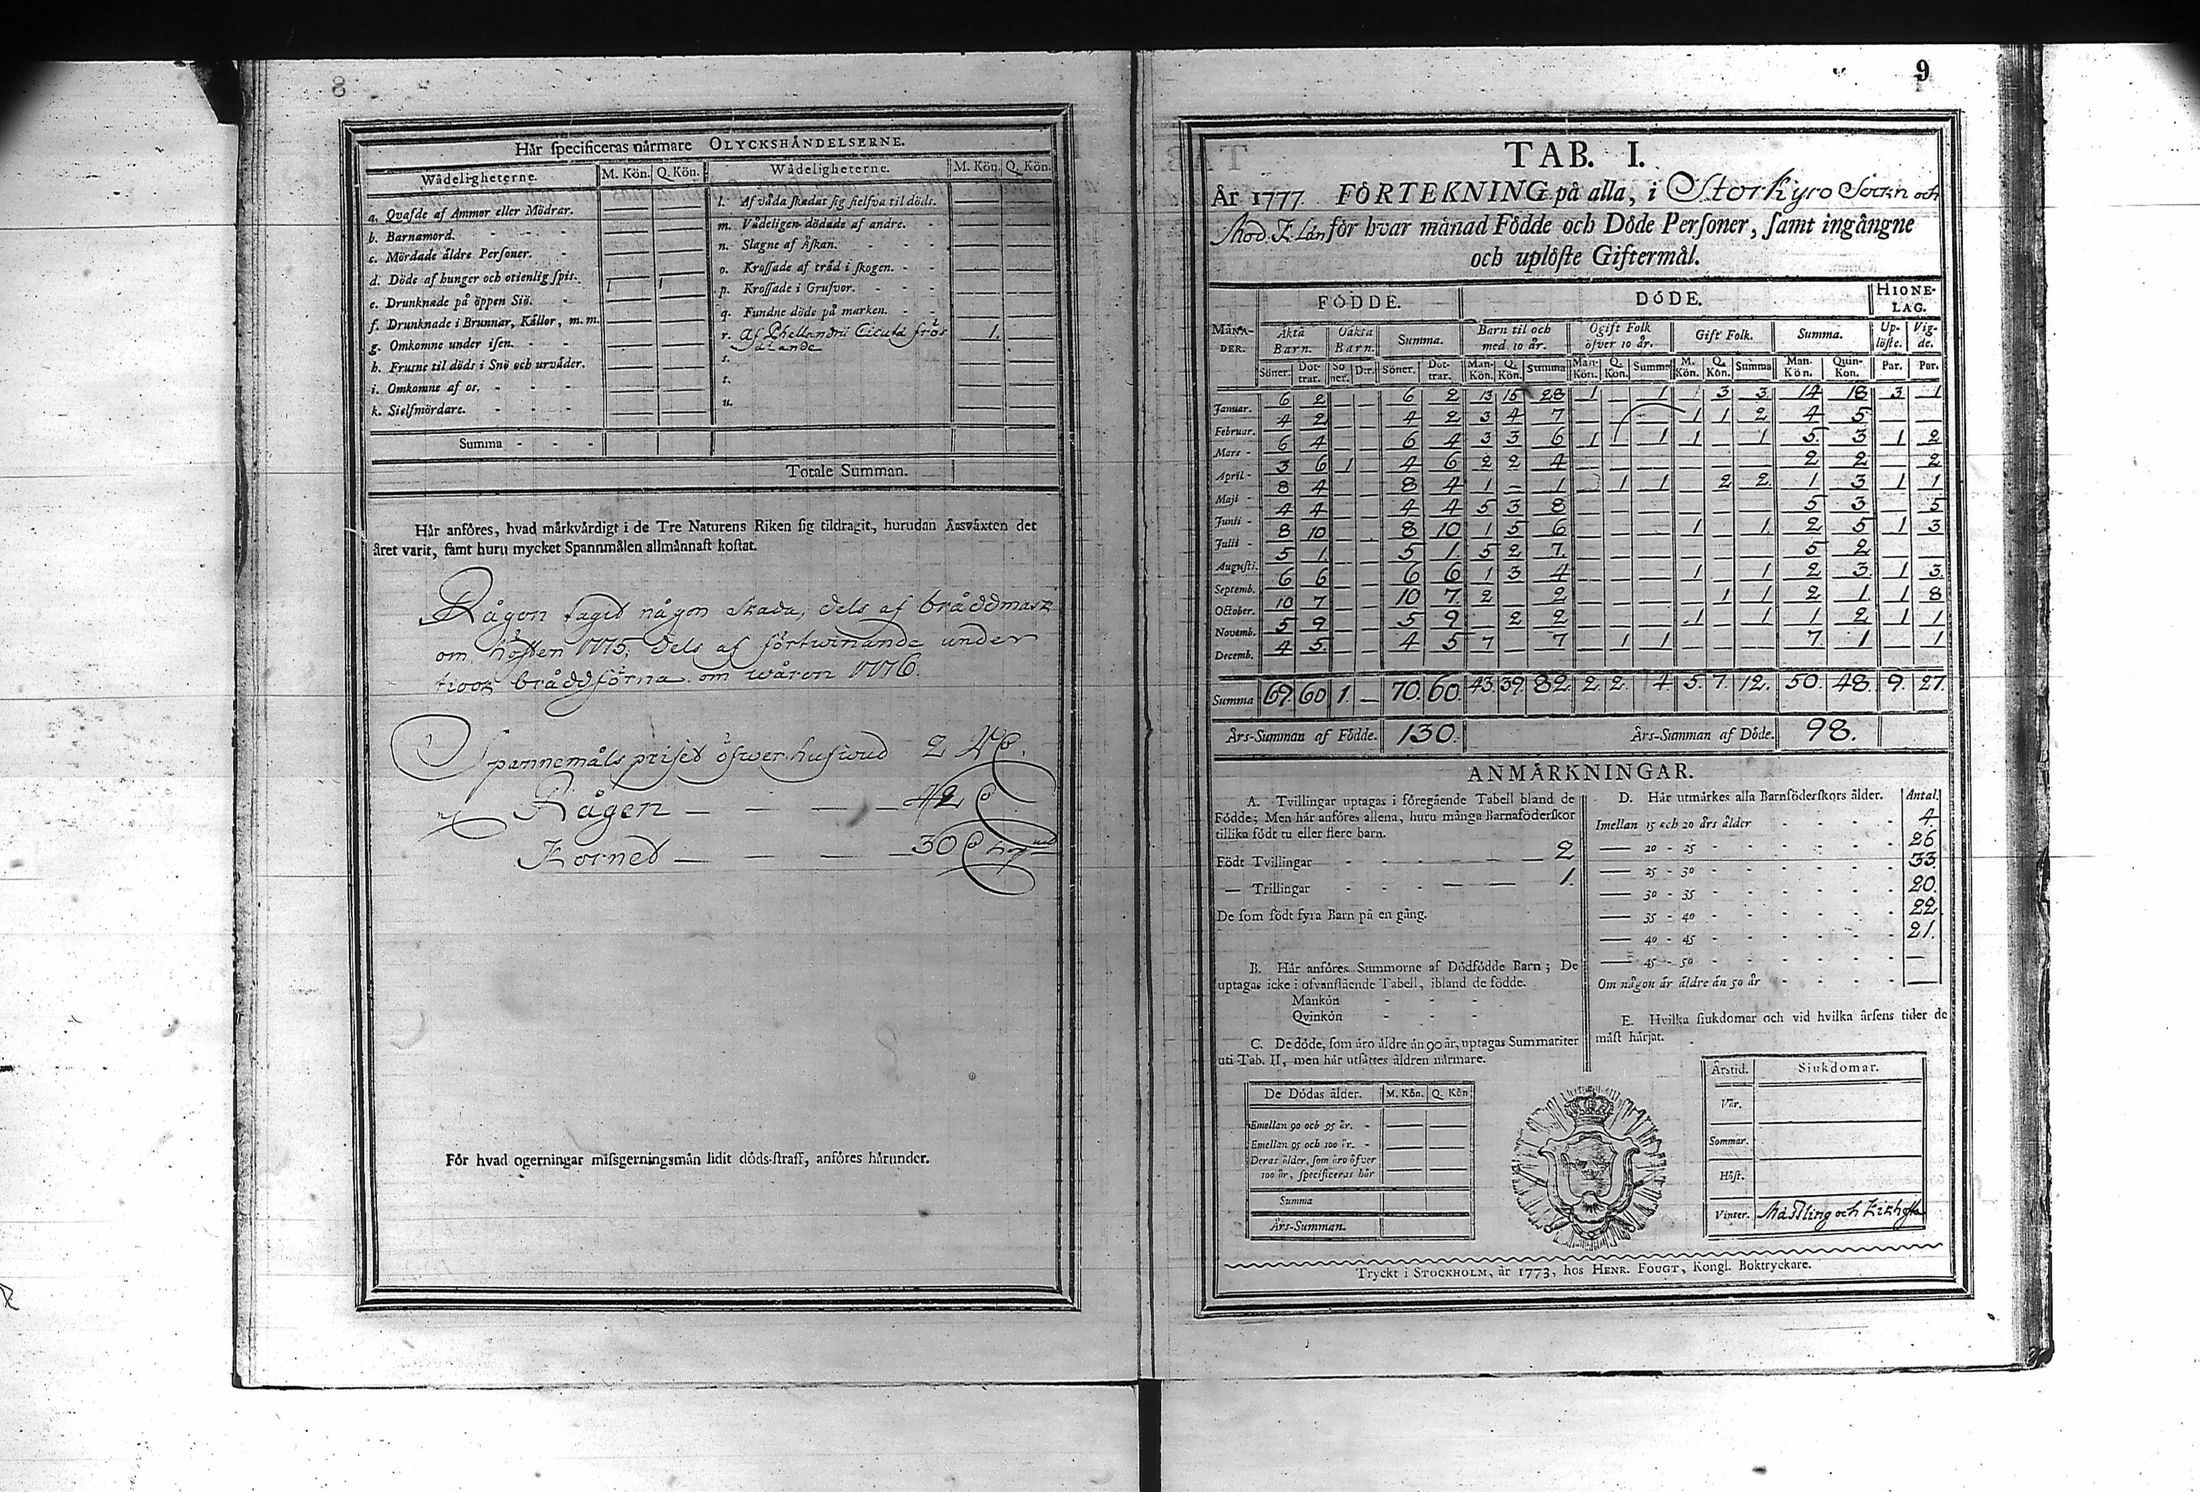 8
Här specificeras närmare OLYCKSHÄNDELSERNE.
Wådeligheterne. M. Kön. Q. Kön. Wådeligheterne. M. Kön. Q. Kön.
a. Qvafde af Ammor eller Mödrar.
b. Barnamord.
c. Mördade äldre Personer.
d. Döde af hunger och otienlig spis. 1 1
e. Drunknade på öppen Siö.
f. Drunknade i Brunnar, Källor, m. m.
g. Omkomne under isen.
h. Frusne til döds i Snö och urväder.
i. Omkomne af os.
k. Sielfmördare.
l. Af våda skadat sig sielfva til döds.
m. Vådeligen dödade af andre.
n. Slagne af Åskan.
o. Krossade af träd i skogen.
p. Krossade i Grufvor.
q. Fundne döde på marken.
r. Af Phellandrii Cicuta frös 1.
ätande
s.
t.
u.
Summa
Totale Summan.
Här anföres, hvad märkvärdigt i de Tre Naturens Riken sig tildragit, hurudan Årsväxten det
året varit, samt huru mycket Spannmålen allmännast kostat.
Rågon tagit någon skada, dels af bråddmask
om hösten 1775, dels af förtwinande under
bråddförna om wåren 1776.
Spannemåls priset öfwer hufwud 2
Rågen 42
Kornet 30
För hvad ogerningar missgerningsmän lidit döds-straff, anföres härunder.
9
TAB. I.
År 1777. FÖRTEKNING på alla, i Storkyro Sockn och
Mod. K. Län för hvar månad Födde och Döde Personer, samt ingångne
och uplöste Giftermål.
FÖDDE. DÖDE. HIONELAG.
MÅNADER. Äkta Barn. Oäkta Barn. Summa. Barn til och med 10 år. Ogift Folk öfver 10 år. Gift Folk. Summa. Uplöste. Vigde.
Söner. Döttrar. Söner. D:r. Söner. Döttrar. Man-Kön. Q. Kön. Summa Man-Kön. Q. Kön. Summa M. Kön. Q. Kön. Summa Man-Kön. Quin-Kön. Par. Par.
Januar. 6 2 — — 6 2 13 15 28 1 — 1 — 3 3 14 18 3 1
Februar. 4 2 — — 4 2 3 4 7 — 1 1 2 4 5 — —
Mars 6 4 — — 6 4 3 3 6 1 — 1 1 — 1 5 3 1 2
April 3 6 1 — 4 6 2 2 4 — — — — — — 2 2 — 2
Maji 8 4 — — 8 4 1 — 1 — 1 1 — 2 2 1 3 1 1
Junii 4 4 — — 4 4 5 3 8 — — — — — — 5 3 — 5
Julii 8 10 — — 8 10 1 5 6 — — — 1 — 1 2 5 1 3
Augusti. 5 1 — — 5 1 5 2 7 — — — — — — 5 2 — —
Septemb. 6 6 — — 6 6 1 3 4 — — — 1 — 1 2 3 1 3
October. 10 7 — — 10 7 2 — 2 — — — — 1 1 2 1 1 8
Novemb. 5 9 — — 5 9 — 2 2 — — — 1 — 1 1 2 1 1
Decemb. 4 5 — — 4 5 7 — 7 — 1 1 — — — 7 1 — 1
Summa 69. 60 1. — 70. 60. 43. 39. 82. 2. 2. 4. 5. 7. 12. 50. 48. 9. 27.
Års-Summan af Födde. 130. Års-Summan af Döde. 98.
ANMÄRKNINGAR.
A. Tvillingar uptagas i föregående Tabell bland de
Födde; Men här anföres allena, huru många Barnaföderskor
tillika födt tu eller flere barn.
Födt Tvillingar 2
— Trillingar 1.
De som födt fyra Barn på en gång.
B. Här anföres Summorne af Dödfödde Barn; De
uptagas icke i ofvanstående Tabell, ibland de födde.
Mankön
Qvinkön
C. De döde, som äro äldre än 90 år, uptagas Summariter
uti Tab. II, men här utsättes åldren närmare.
De Dödas ålder. M. Kön. Q. Kön
Emellan 90 och 95 år.
Emellan 95 och 100 år.
Deras ålder, som äro öfver
100 år, specificeras här
Summa
Års-Summan.
D. Här utmärkes alla Barnföderskors ålder. Antal.
Imellan 15 och 20 års ålder 4.
— 20 - 25 26
— 25 - 30 33
— 30 - 35 20.
— 35 - 40 22
— 40 - 45 21.
— 45 - 50 —
Om någon är äldre än 50 år —
E. Hvilka siukdomar och vid hvilka årsens tider de
mäst härjat.
Årstid. Siukdomar.
Vår.
Sommar.
Höst.
Vinter. Mässling och Kikhosta
Tryckt i STOCKHOLM, år 1773, hos HENR. FOUGT, Kongl. Boktryckare.